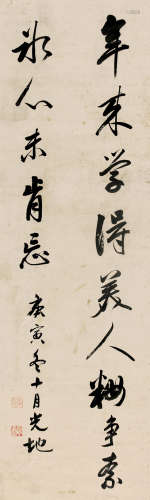 年来学得美人粧争奈
冰心未肯忘
庚寅冬十月光地